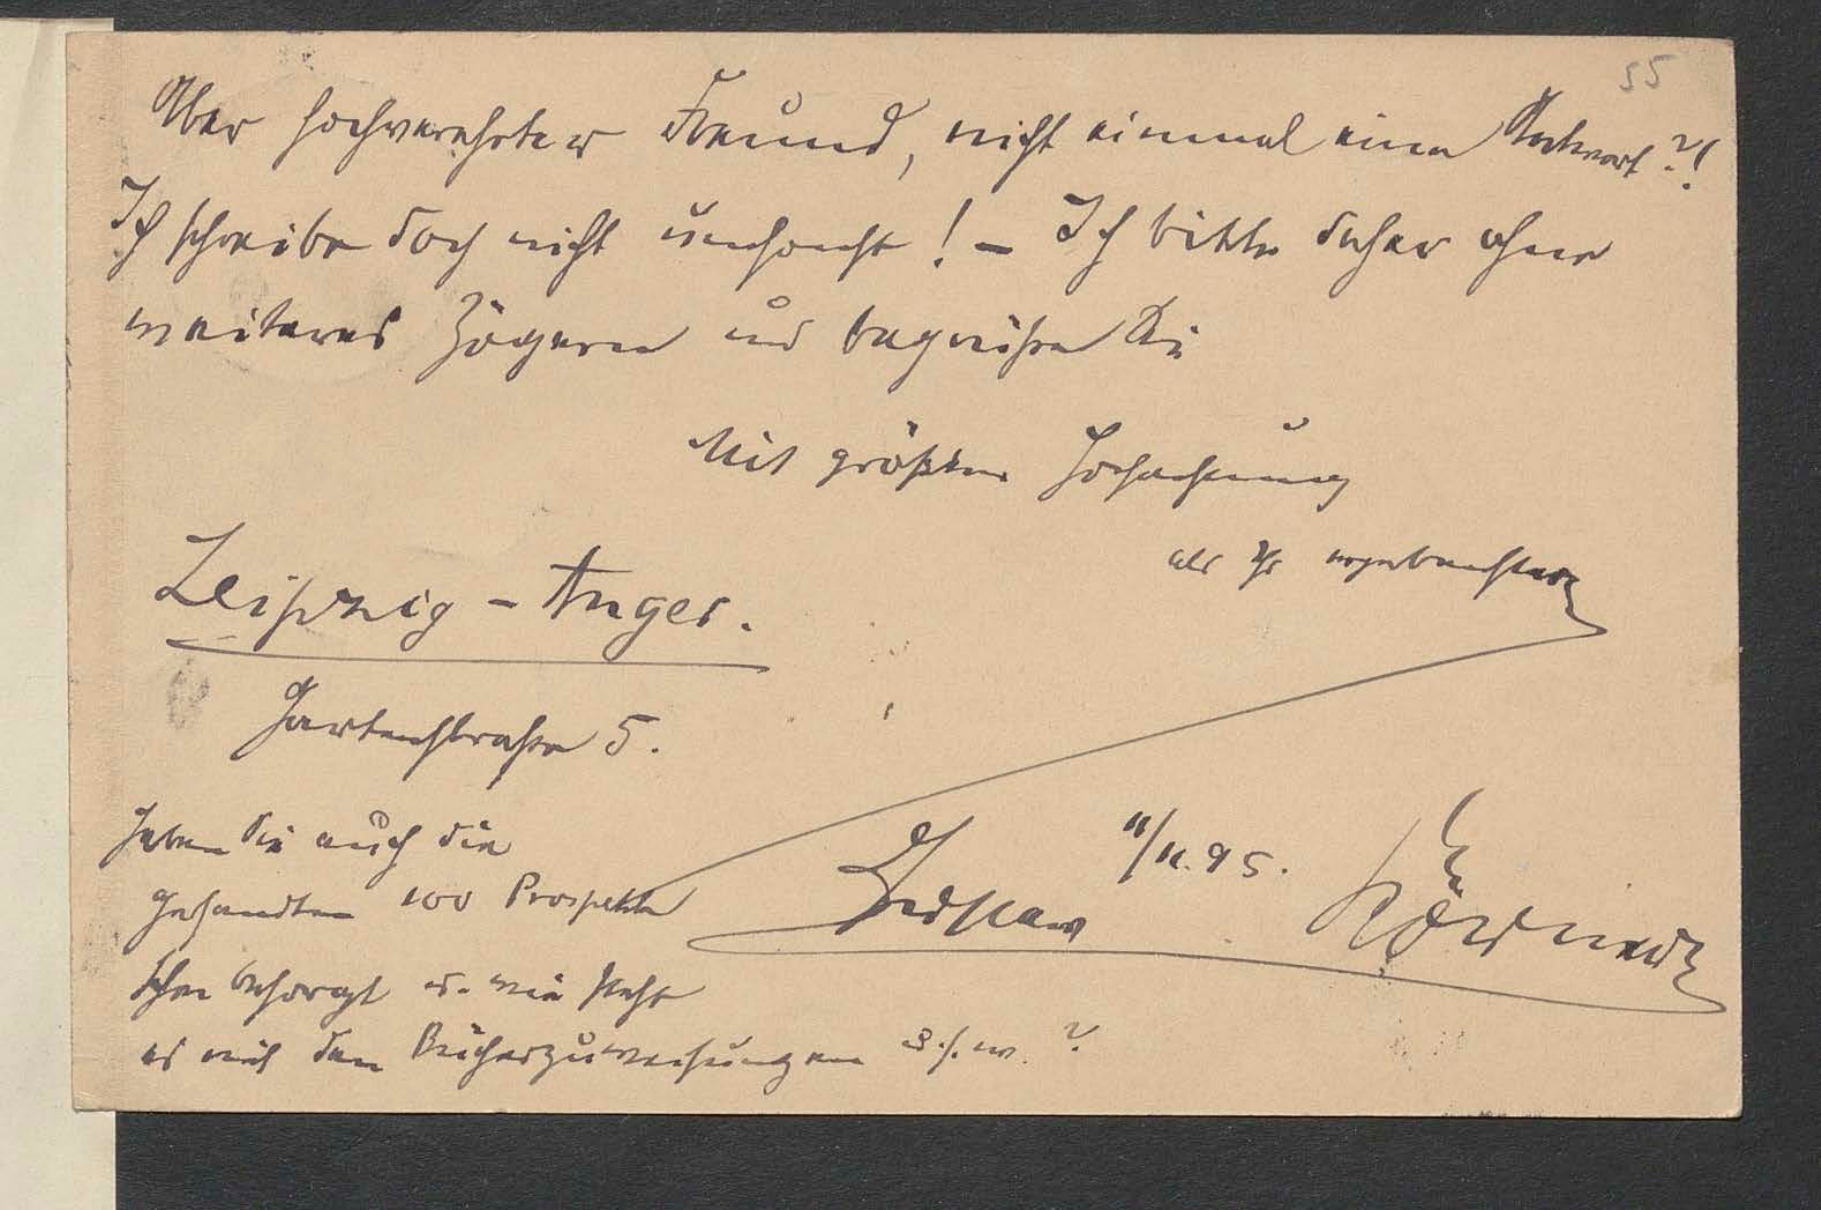 55
Aber hochverehrter Freund, nicht einmal eine Antwort?!
Ich schreibe doch nicht umsonst! – Ich bitte daher ohne
weiteres Zögern und begrüße Sie
Mit größter Hochachtung
als Ihr ergebenster
Leipzig - Anger.
Gartenstraße 5.
11/11. 95.
Körner
Haben Sie auch die
gesandten 100 Prospekte
schon besorgt u. wie steht
es mit den Bücherzuweisungen u.s.w.?